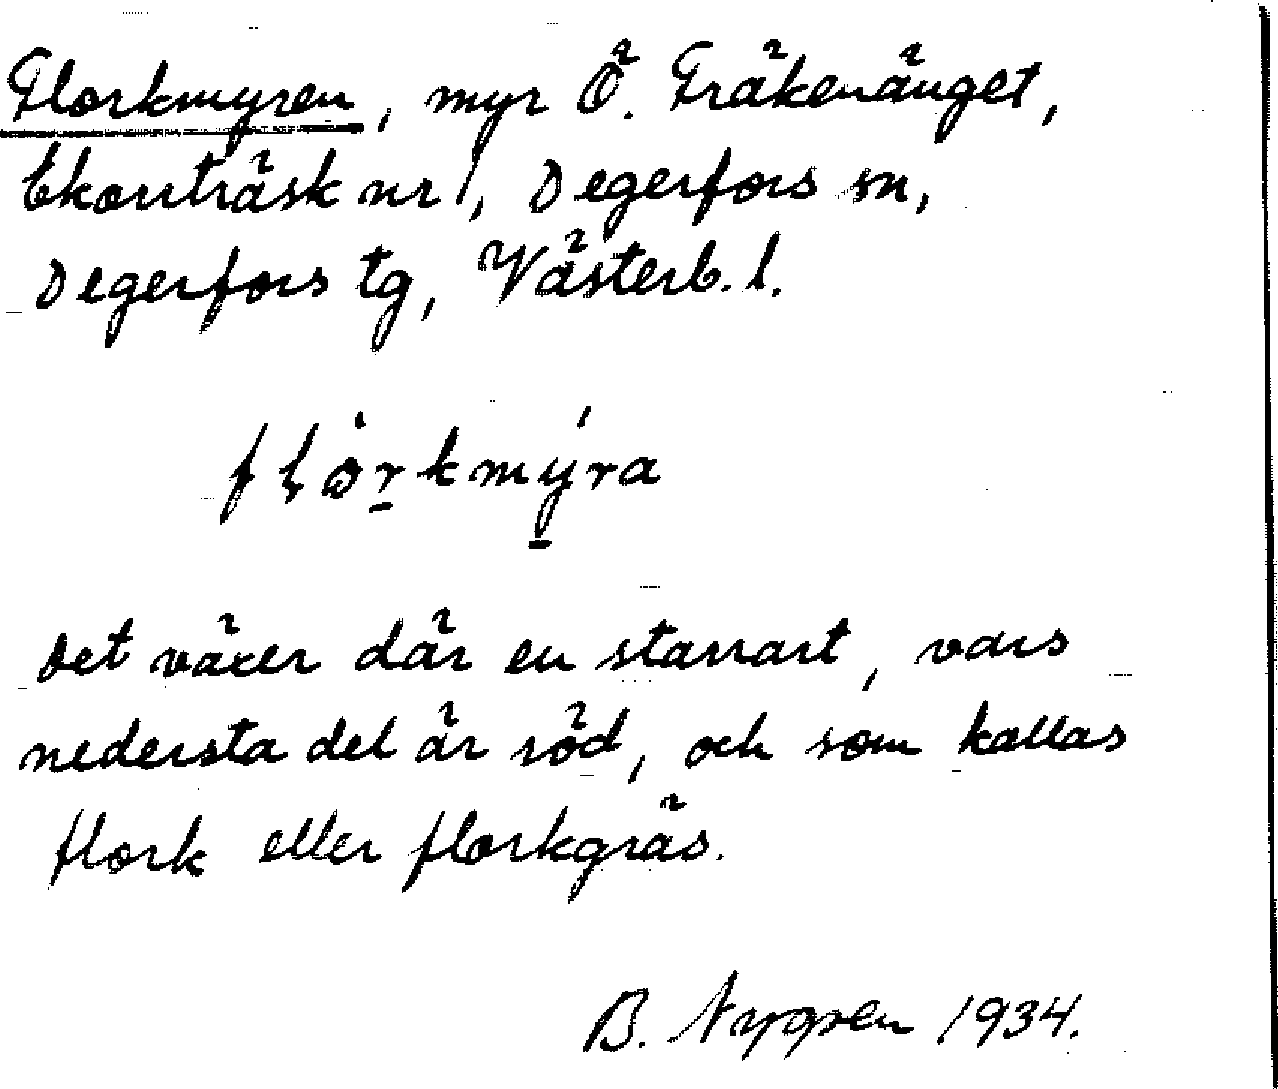 Florkmyren, myr Ö. Fräkenänget,
Ekorrträsk nr 1, Degerfors sn,
Degerfors tg, Västerb. l.
flörkmýra
Det växer där en starrart, vars
nedersta del är röd, och som kallas
flork eller florkgräs.
B. Nygren 1934.